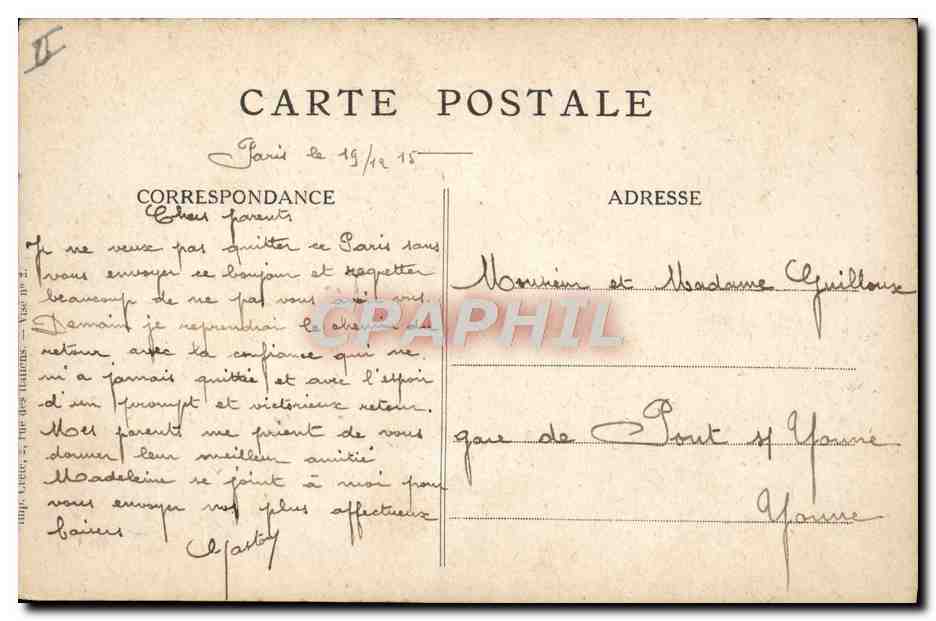 II
CARTE POSTALE
Paris le 19/12 15
CORRESPONDANCE
Chers parents
Je ne veux pas quitter ce Paris sans
vous envoyer ce bonjour et regretter
beaucoup de ne pas vous avoir vus.
Demain je reprendrai le chemin du
retour avec la confiance qui ne
m'a jamais quittée et avec l'espoir
d'un prompt et victorieux retour.
Mes parents me prient de vous
donner leur meilleur amitié
Madeleine se joint à moi pour
vous envoyer nos plus affectueux
baisers
Gaston
ADRESSE
Monsieur et Madame Guilloux
gare de Pont s/ Yonne
Yonne
Imp. Crété, 2, rue des Italiens. — Visé n° 2.
CPAPHIL